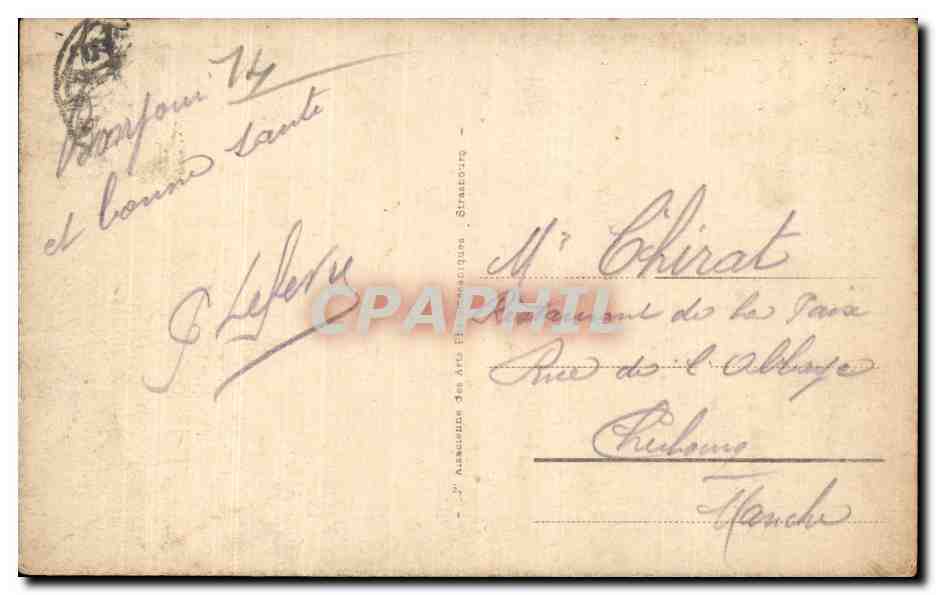 14
Bonjour
et bonne santé
G Lefevre
Sté Alsacienne des Arts Photomécaniques . Strasbourg
CPAPHIL
Mr Chirat
Restaurant de la Paix
Rue de l'Abbaye
Cherbourg
Manche